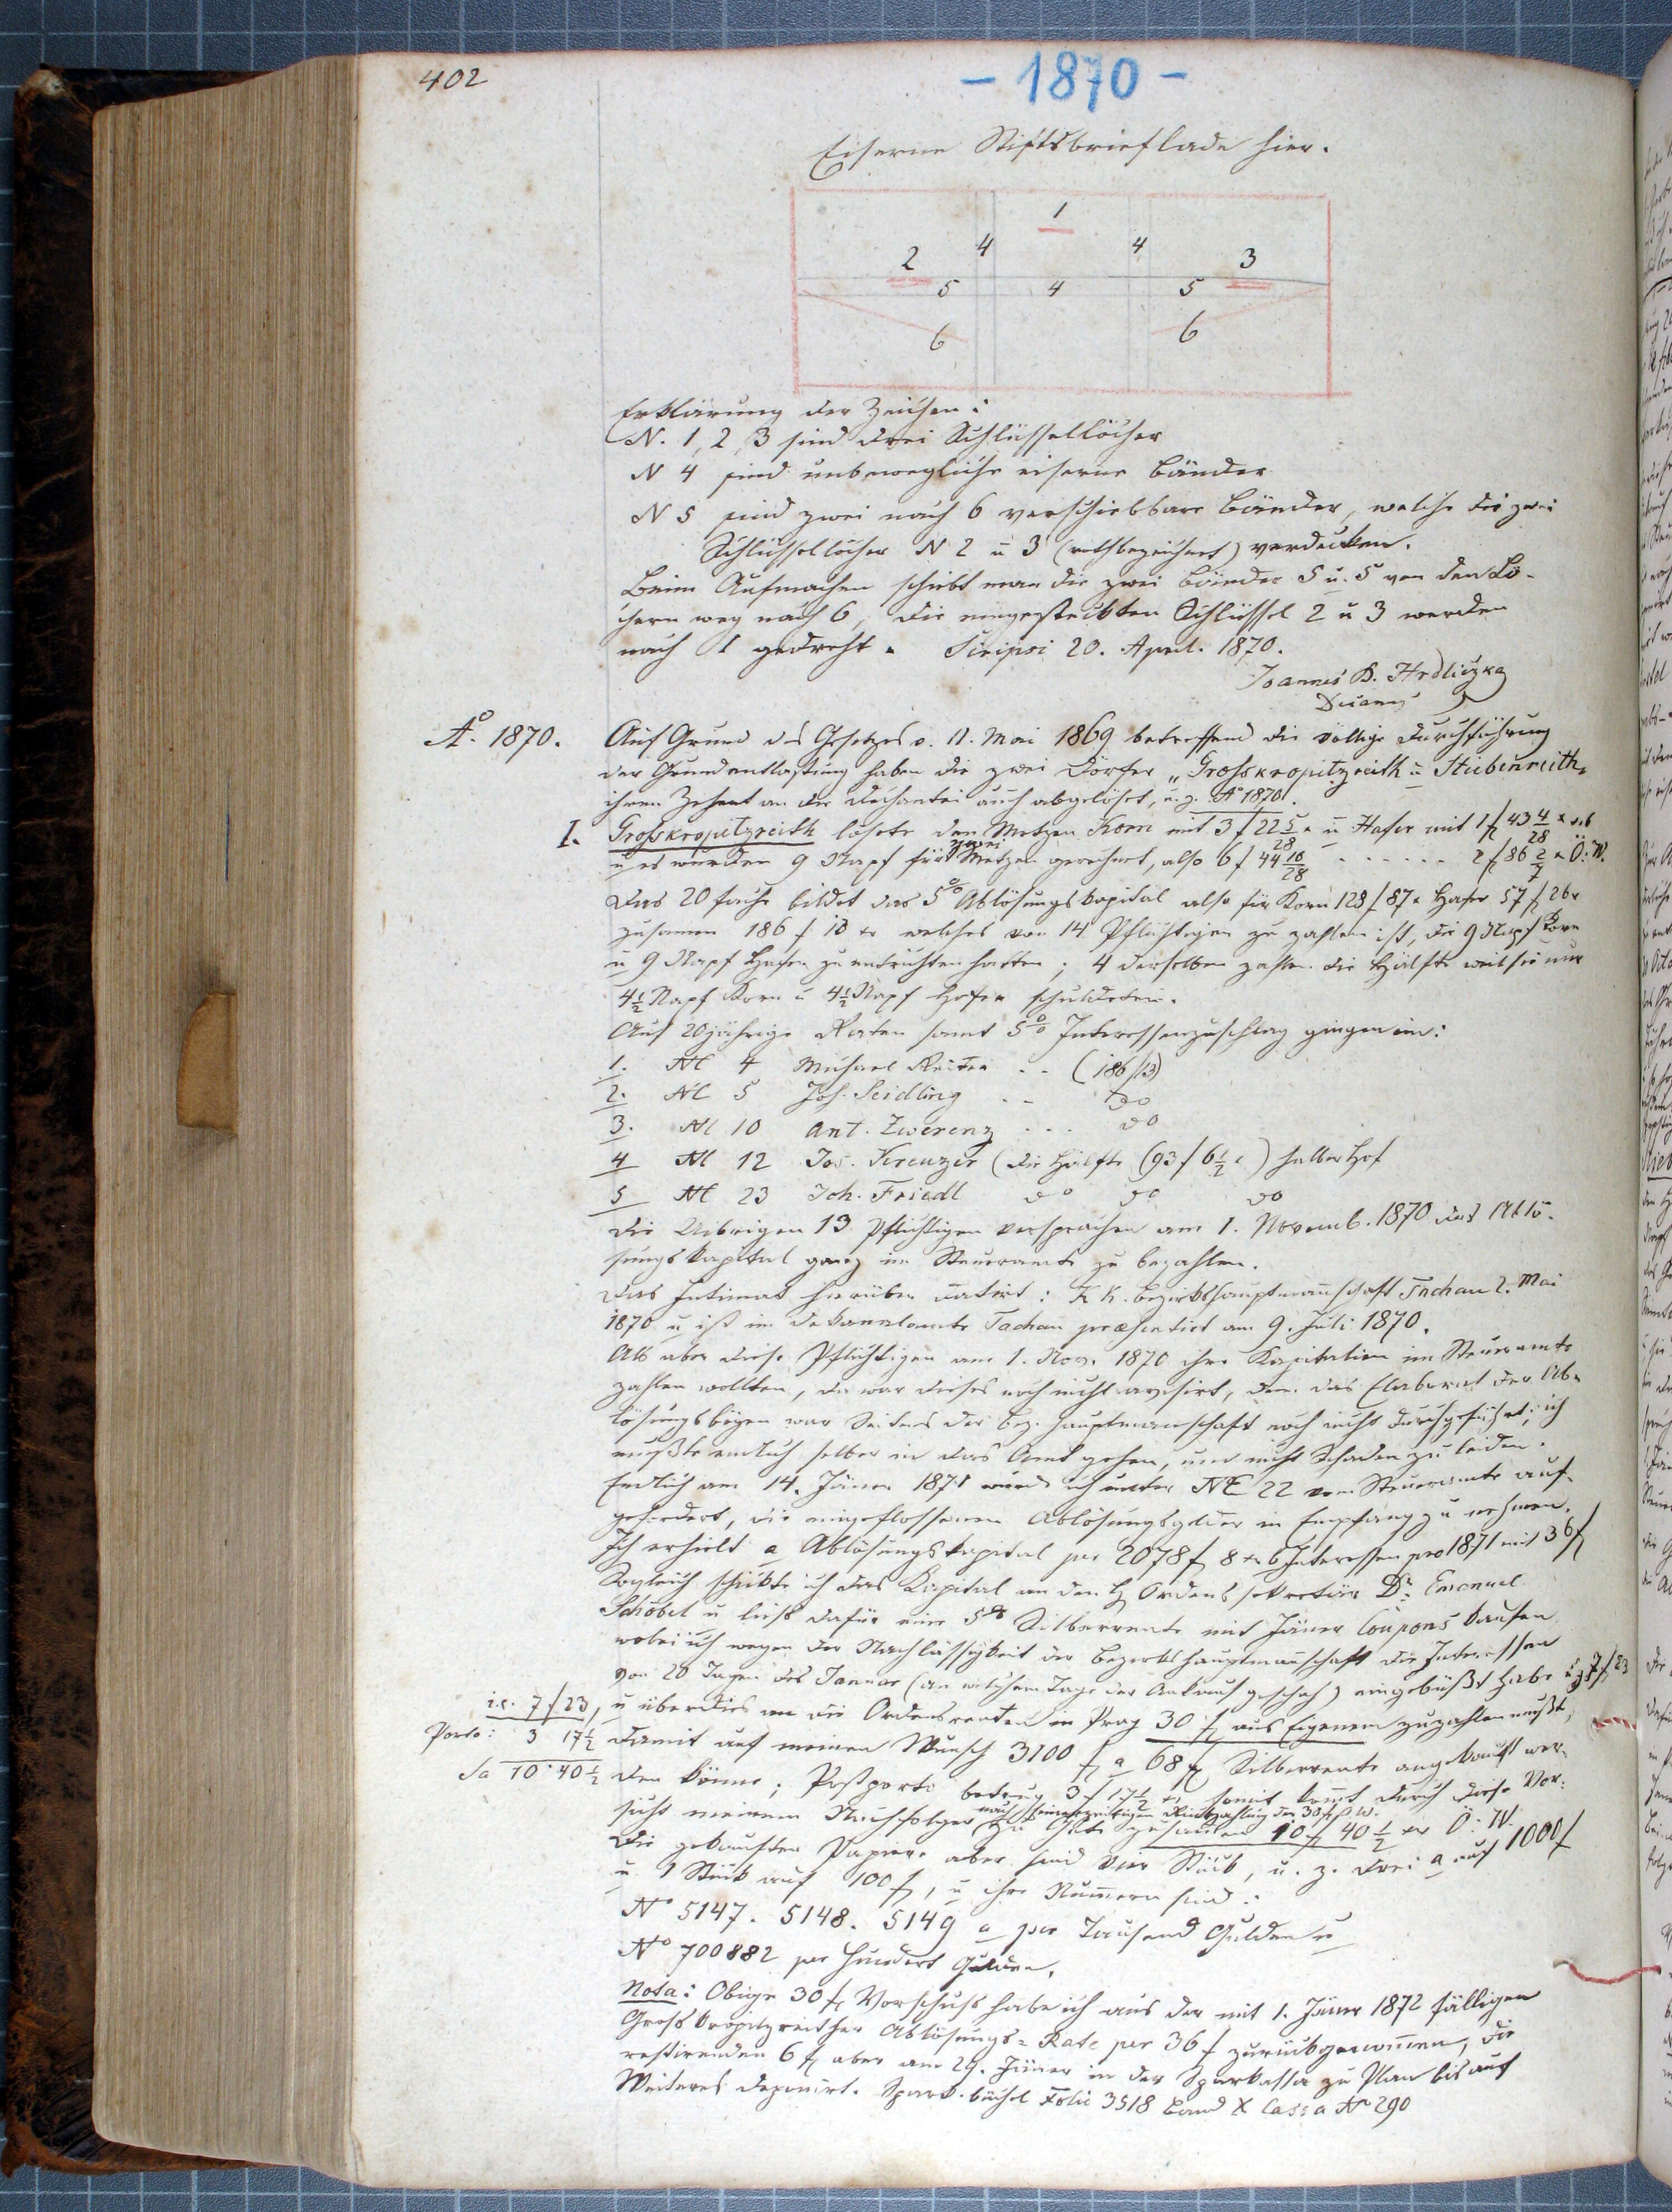 402
- 1870 -
Eiserne Stiftsbrieflade hier.
1
2 4 4 3
5 4 5
6 6
Erklärung der Zeichen:
N. 1, 2, 3 sind drei Schlüssellöcher
N 4 sind unbewegliche eiserne Bänder
N 5 sind zwei nach 6 verschiebbare Bänder, welche die zwei
Schlüssellöcher N 2 u 3 (rothbezeichnet) verdecken.
Beim Aufmachen schiebt man die zwei Bänder 5 u. 5 von den Lö-
chern weg nach 6, die eingesteckten Schlüssel 2 u 3 werden
nach 1 gedreht. Scripsi 20. April. 1870.
Joannes B. Hrdliczka
Decanus
Aº. 1870. Auf Grund des Gesetzes v. 11. Mai 1869 betreffend die völlige Durchführung
der Grundentlastung haben die zwei Dörfer „Grosskropitzreith u Stiebenreith„
ihren Zehent an die Dechantei auch abgelöset, u. z. Aº 1870.
I. Grosskropitzreith löste den Metzen Korn mit 3 f 22 5/28 x u Hafer mit 1 f 43 4/28 x
u es wurden 9 Napf für zwei Metzen gerechnet, also 6 f 44 10/28 . . . . . . . 2 f 86 2/7 x Ö: W.
Das 20 fache bildet das 5% Ablösungskapital also für Korn 128 f 87 x Hafer 57 f 26 x
zusamen 186 f 13 xr welches von 14 Pflichtigen zu zahlen ist, die 9 Napf Korn
u 9 Napf Hafer zu entrichten hatten; 4 derselben zahlen die Hälfte weil sie nur
4½ Napf Korn u 4½ Napf Hafer schuldeten.
Auf 20jährige Raten samt 5% Interessenzuschlag gingen ein:
1. Nº 4 Michael Reiter . . (186 f 13)
2. Nº 5 Joh. Seidling . . dº
3. Nº 10 Ant. Zwerenz . . . dº
4 Nº 12 Jos. Kreuzer (die Hälfte (93 f 6½ x) halber Hof
5 Nº 23 Joh. Friedl dº dº dº
Die Uibrigen 13 Pflichtigen versprachen am 1. Novemb. 1870 das Ablö-
sungskapital ganz im Steueramte zu bezahlen.
Das Intimat hierüber datirt: K. K. Bezirkshauptmannschaft Tachau 2. Mai
1870 u ist im Dekanalamte Tachau præsentirt am 9. Juli 1870.
Als aber diese Pflichtigen am 1. Nov. 1870 ihre Kapitalien im Steueramte
zahlen wollten, da war dieses noch nicht avisirt, den. das Elaborat der Ab-
lösungsbögen war Seitens der Bez. Hauptmannschaft noch nicht durchgeführt; ich
mußte endlich selber in das Amt gehen, um nicht Schaden zu leiden.
Endlich am 14. Jäner 1871 wurde ich unter NE 22 vom Steueramte auf-
gefordert, die eingeflossenen Ablösungsgelder in Empfang zu nehmen.
Ich erhielt a Ablösungskapital per 2078 f 8 xr b Interessen pro 1871 mit 36 f
Sogleich schickte ich das Kapital an den H Ordenssekretär Dr. Emanuel
Schöbel u ließ dafür eine 5% Silberrente mit Jäner Coupons kaufen
wobei ich wegen der Nachlässigkeit der Bezirkshauptmanschaft die Interessen
von 20 Tagen des Januar (an welchem Tage der Ankauf geschah) eingebüßt habe i. e. 7 f 23
i.e. 7 f 23, u überdies an die Ordensrenten in Prag 30 f aus Eigenem zuzahlen mußt,
Porto: 3 17½ damit auf meinen Wunsch 3100 f a 68 f Silberrente angekauft wer-
Sa 10·40½ den könne; Postporto betrug 3 f 17½ xr somit komt durch diese Vor-
sicht meinem Nachfolger nach seinerzeitigen Rückzahlung der 30 f Ö. W. zu Gute zusamen 10 f 40½ xr Ö: W.
Die gekauften Papiere aber sind vier Stück, u. z. drei a auf 1000 f
u. 1 Stück auf 100 f, u ihre Numern sind:
Nº 5147. 5148. 5149 a per Tausend Gulden u
Nº 700882 per Hundert Gulden.
Nota: Obige 30 f Vorschuß habe ich aus der mit 1. Jäner 1872 fälligen
Grosskropitzreither Ablösungs-Rate per 36 f zurückgenomen, die
restirenden 6 f aber am 29. Jäner in der Sparkassa zu Plan bis auf
Weiteres deponirt. Spark.büchel Folio 3518 Band X Cassa Nº 290